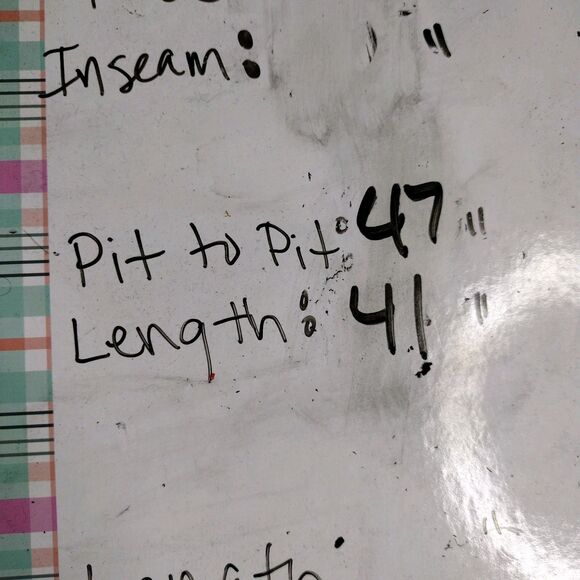 Inseam: "
Pit to Pit: 47"
Length: 41"
Length: